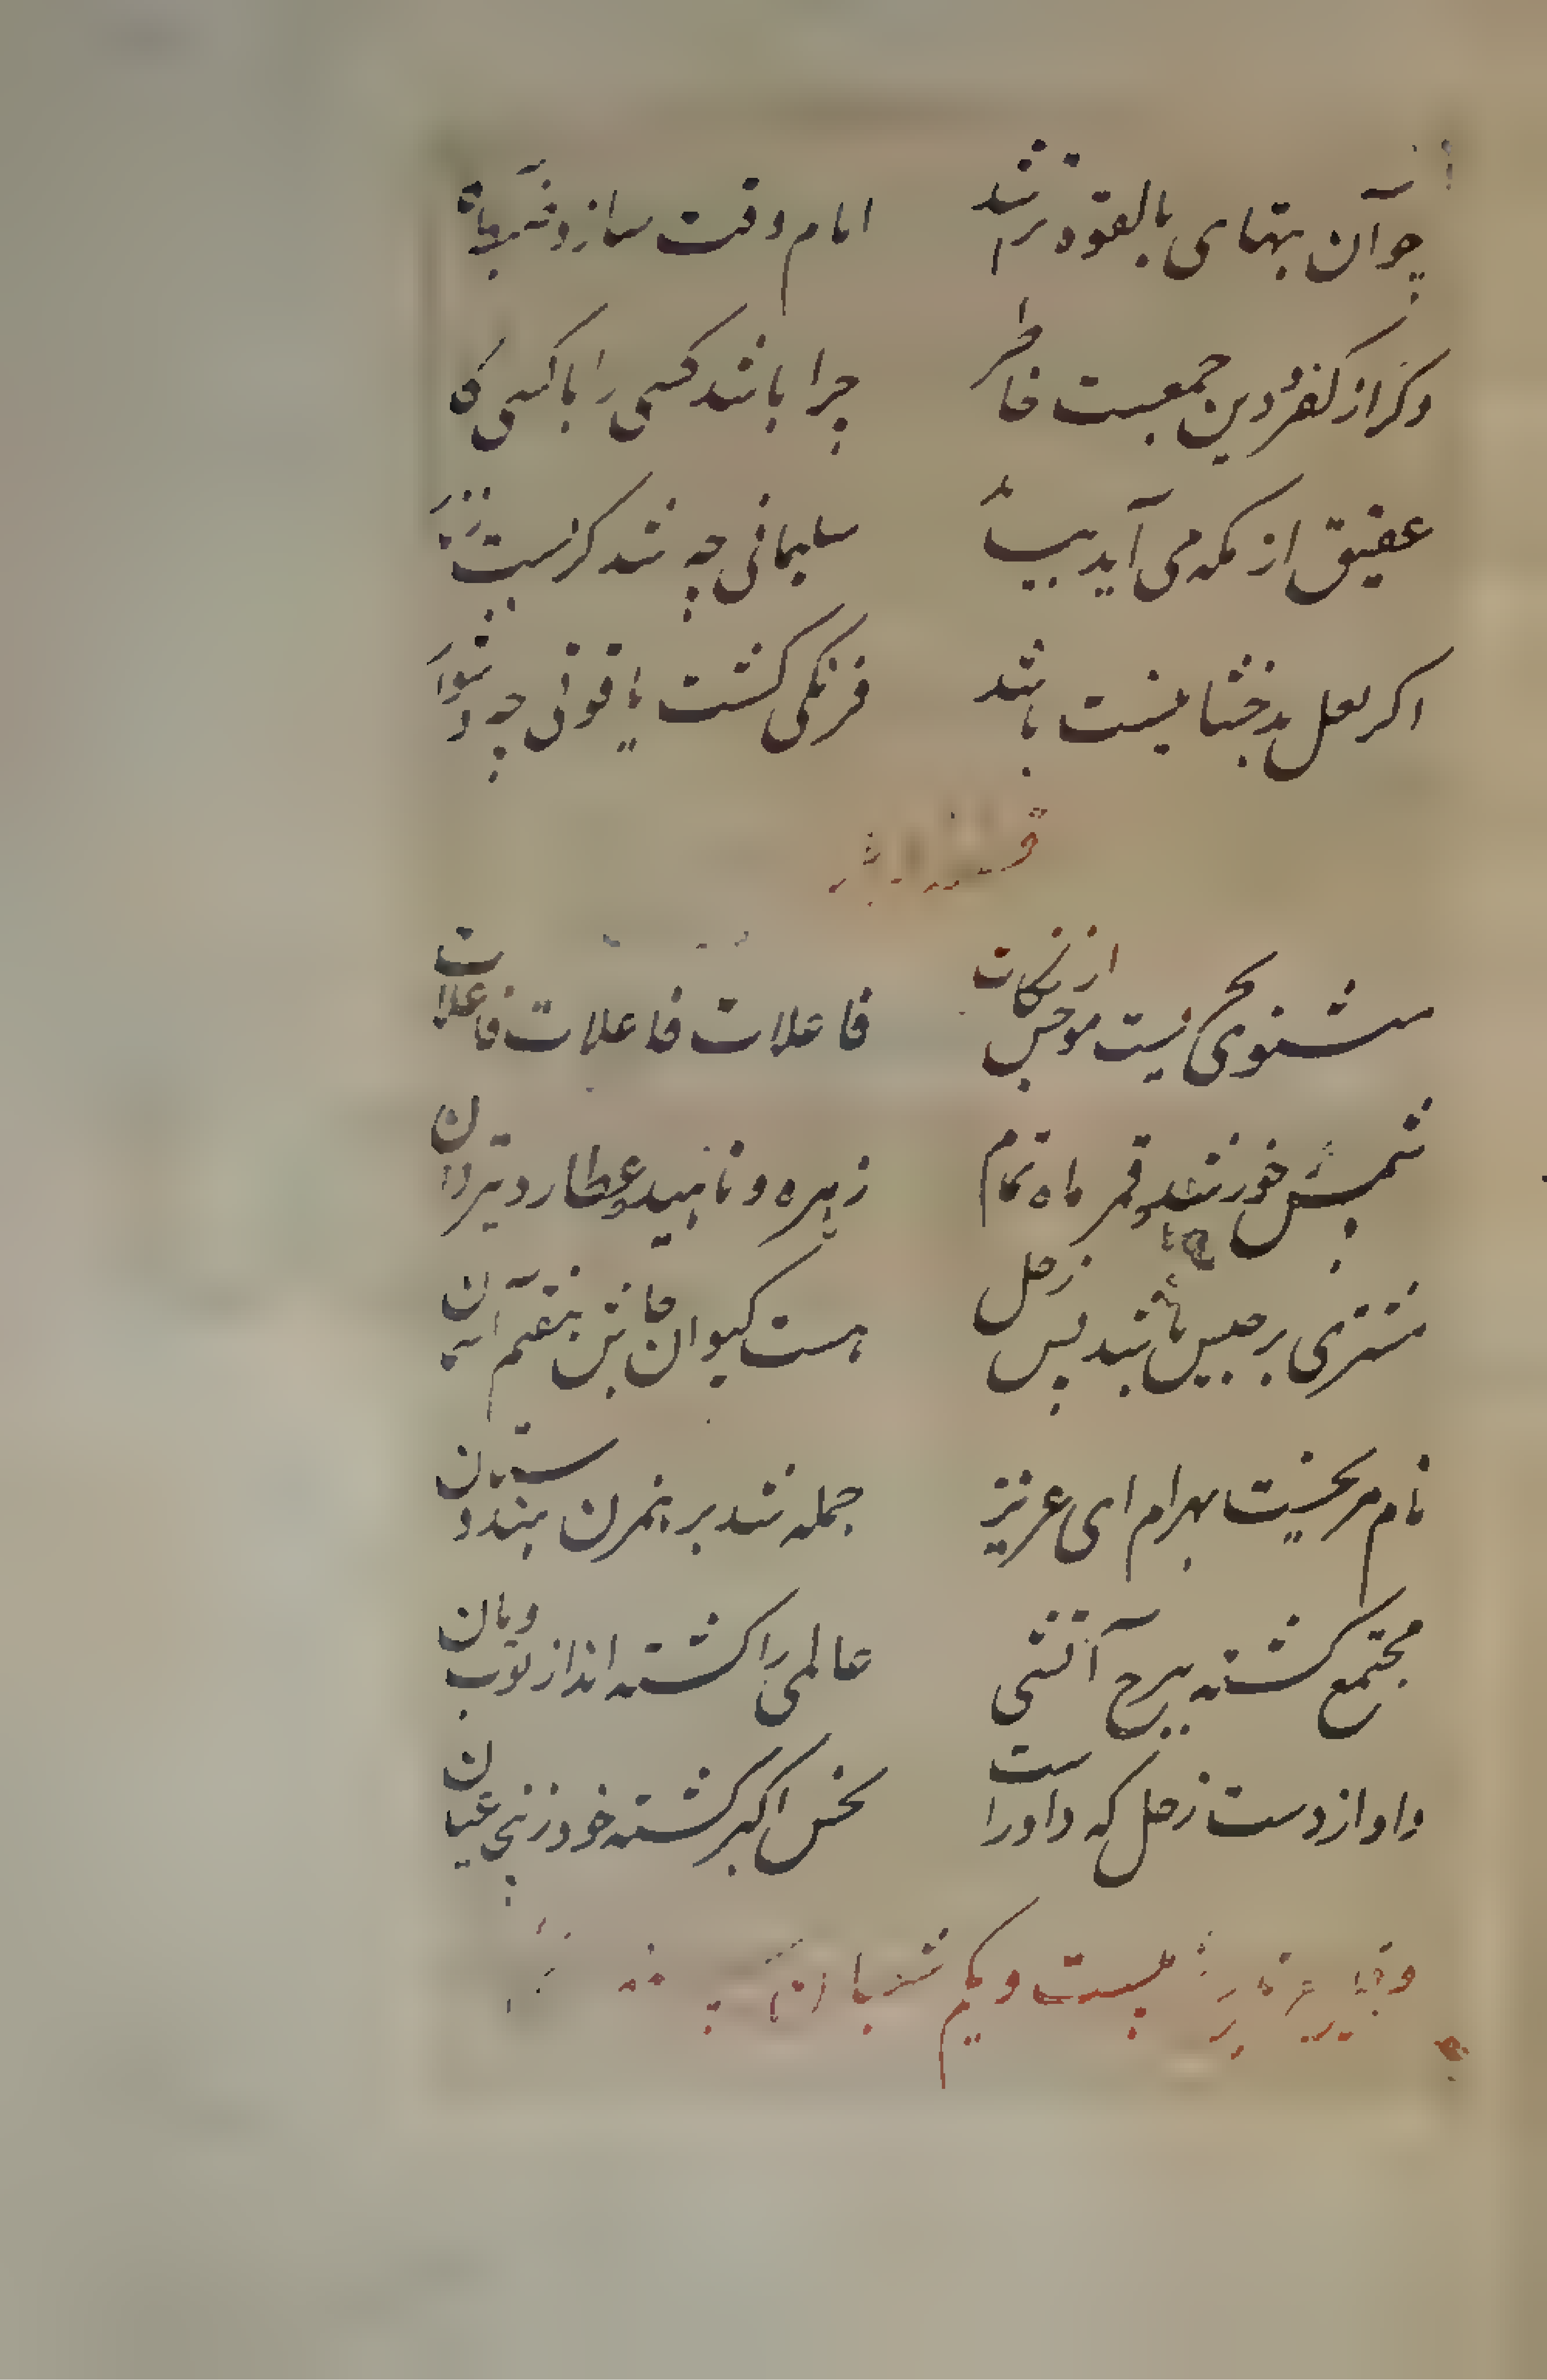 چو آن بتهای بالقوة تراشد امام وقت سازد
وکر از کفر و دین جمعست خاطر چرا باشد کسی را با کسی کا
عقیق از مکه می آید سلیمانی چه شد کر است
اکر لعل بدخشانیست باشد فرنکی کشت یاقوتی چه دشوا
مثنوی بحریست موجش از نکات فاعلات فاعلات فاعلات
شمس خورشید و قمر ماه تمام زهره و ناهید و عطارد تیر دان
مشتری برجیس باشد پس زحل هست کیوان جاش هفتم آسمان
نام مریخست بهرام ای عزیز جمله شد بر هندوستان
مجتمع کشته ببرج آتشی عالمی را کشته اند از توب وبان
داد از دست زحل که داد را ست نحس اکبر کشته خود زنجی عیان
بیست ویکم